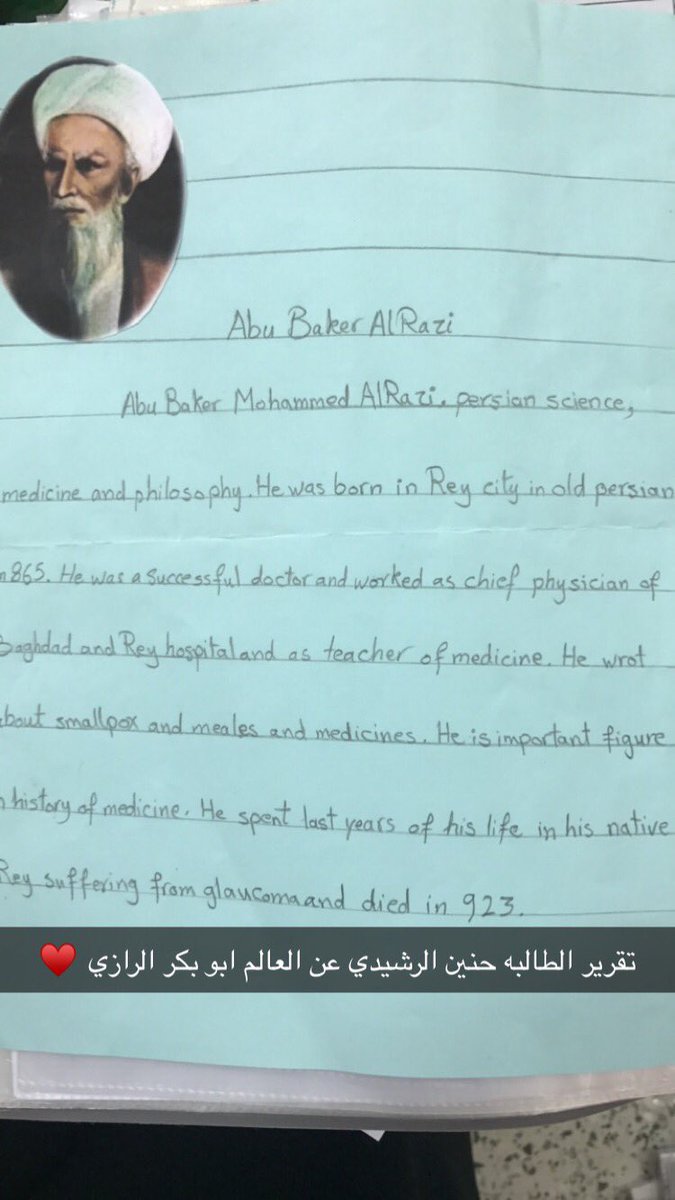 Abu Baker AlRazi
Abu Baker Mohammed AlRazi, persian science,
medicine and philosophy. He was born in Rey city in old persian
n 865. He was a successful doctor and worked as chief physician of
Baghdad and Rey hospital and as teacher of medicine. He wrot
about smallpox and meales and medicines. He is important figure
n history of medicine. He spent last years of his life in his native
Rey suffering from glaucoma and died in 923.
تقرير الطالبه حنين الرشيدي عن العالم ابو بكر الرازي ♥️